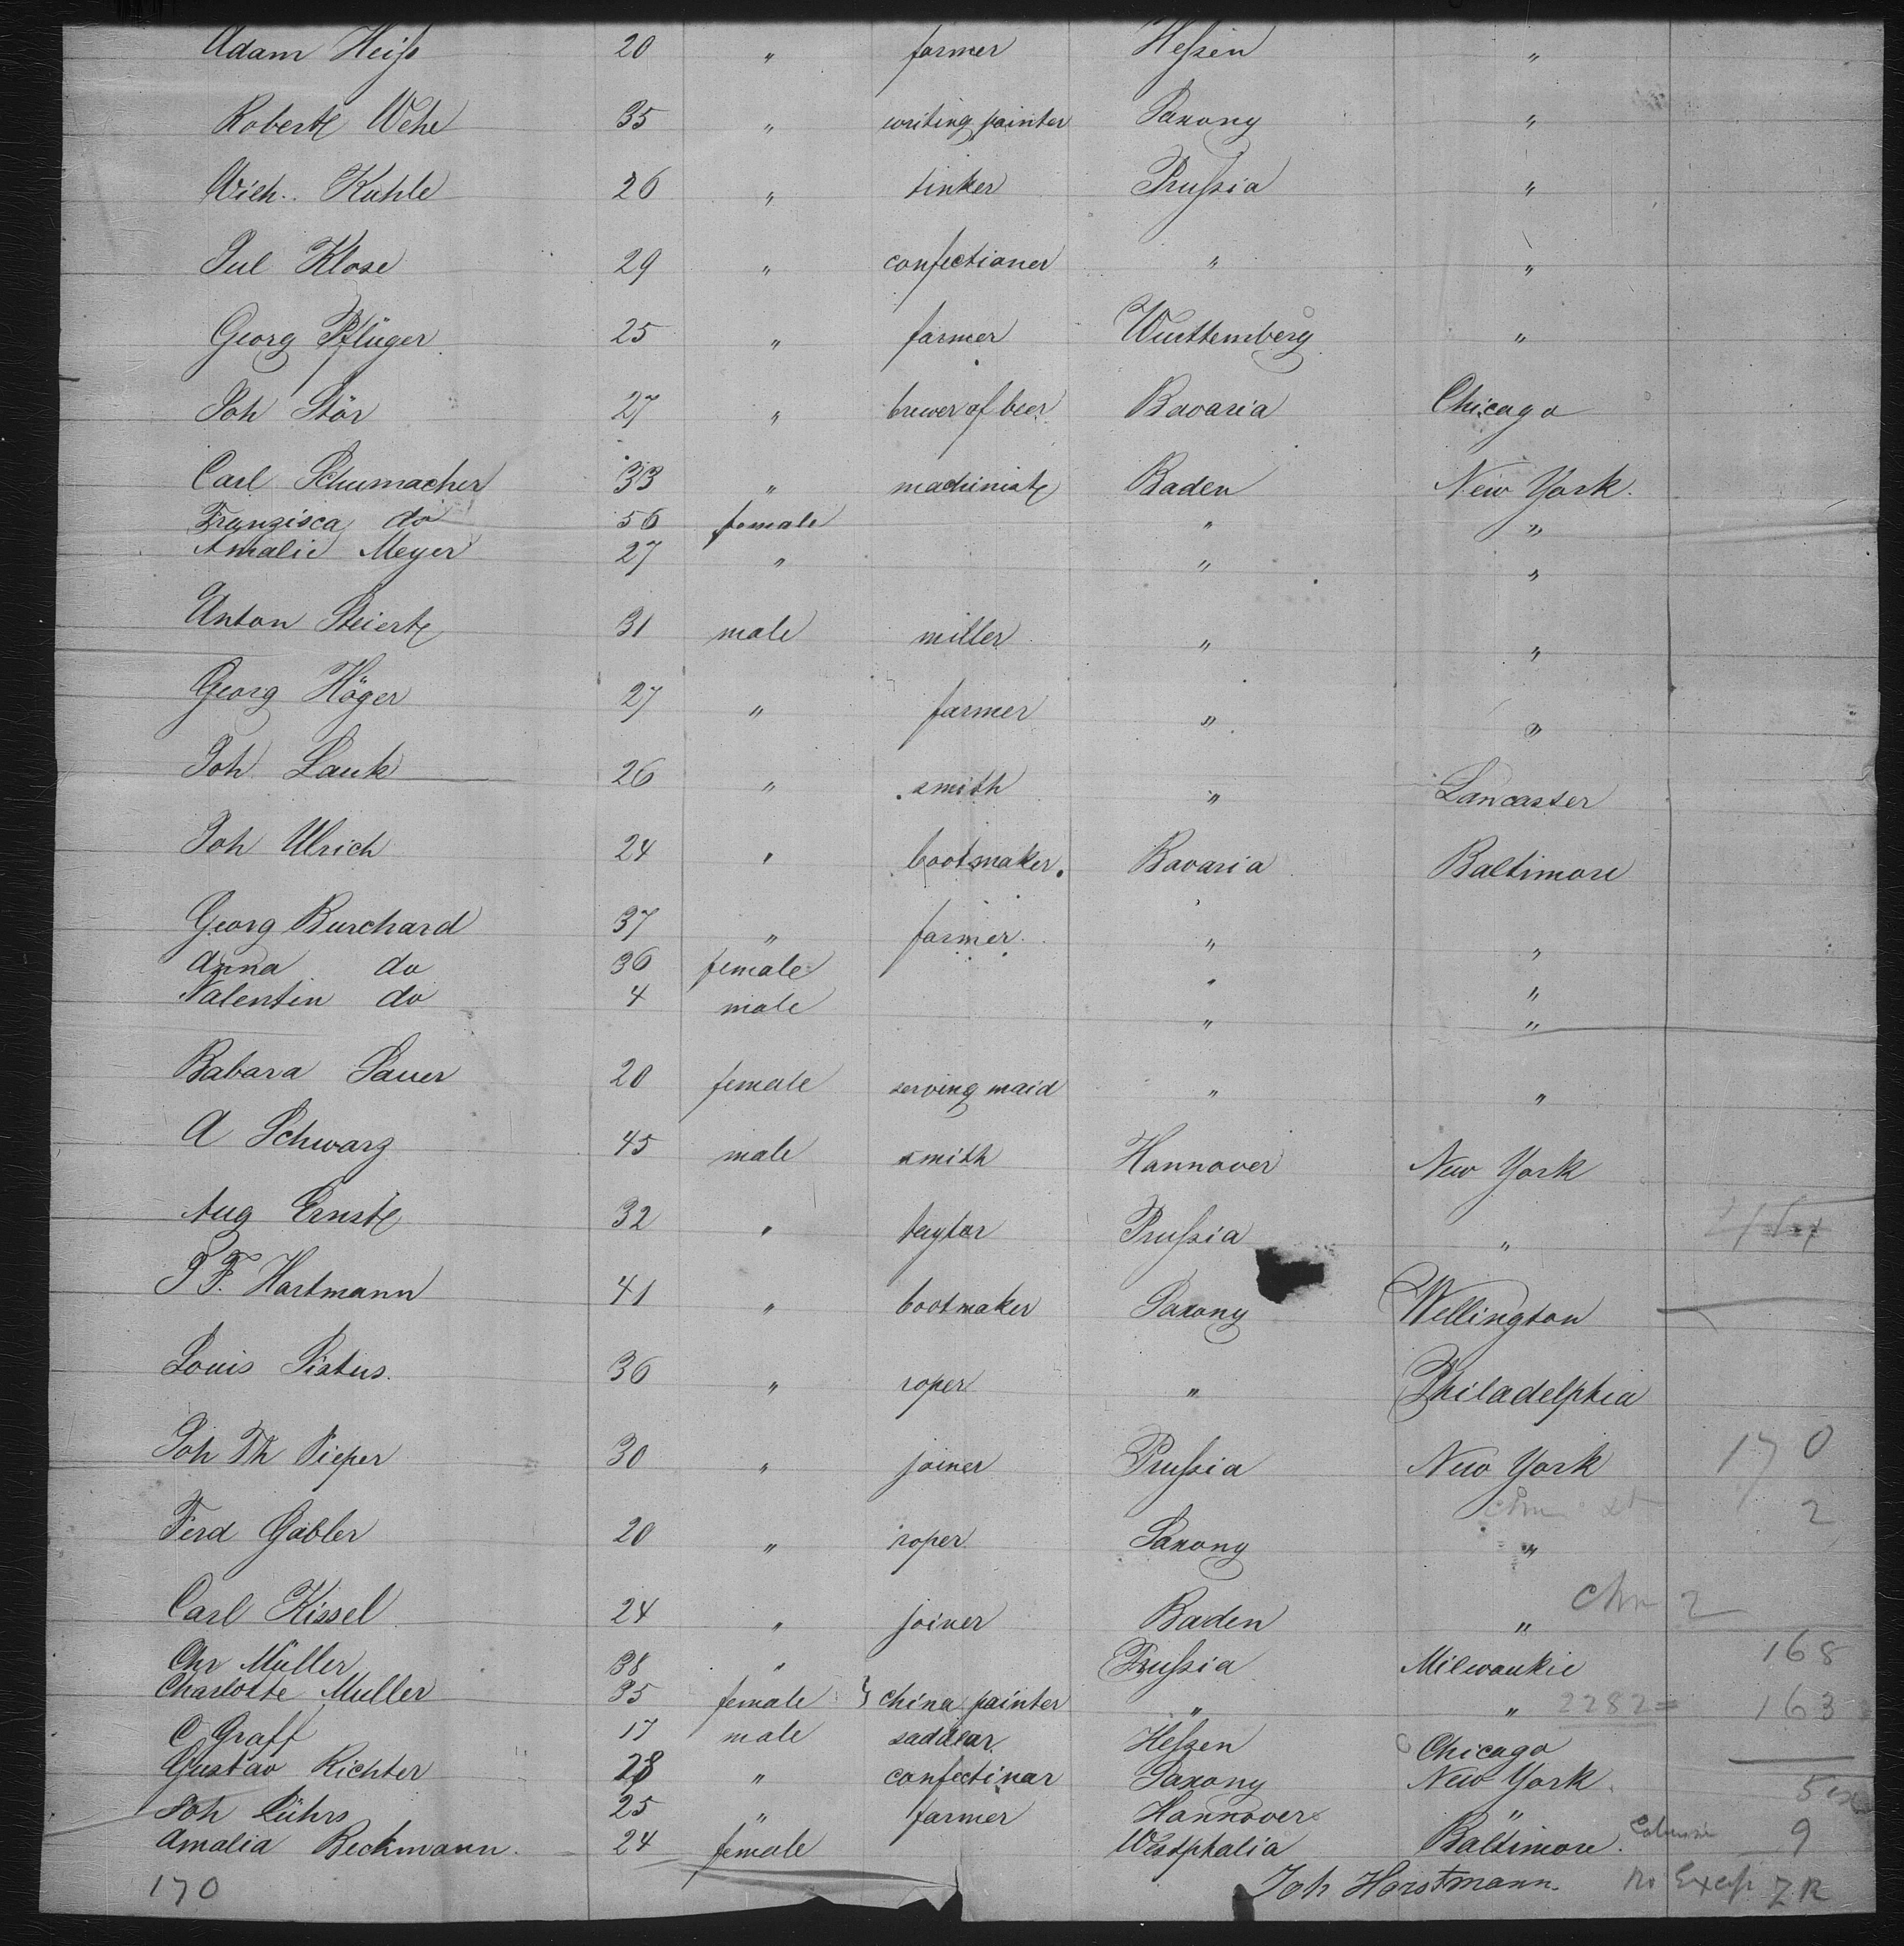 Adam Heiß 20 " farmer Heßen "
Robert Wehe 35 " writing painter Saxony "
Wilh. Kuhle 26 " tinker Prußia "
Jul Klose 29 " confectioner " "
Georg Pflüger 25 " farmer Wurttemberg "
Joh Stör 27 " brewer of beer Bavaria Chicago
Carl Schumacher 33 " machinist Baden New York.
Franzisca do 56 female " "
Amalie Meyer 27 " " "
Anton Steiert 31 male miller " "
Georg Höger 27 " farmer " "
Joh Lauk 26 " smith " Lancaster
Joh Ulrich 24 " bootmaker. Bavaria Baltimore
Georg Burchard 37 " farmer " "
Anna do 36 female " "
Valentin do 4 male " "
Babara Sauer 20 female serving maid " "
A Schwarz 45 male smith Hannover New York
Aug Ernst 32 " taylor Prußia "
F. Hartmann 41 " bootmaker Saxony Wellington
Louis Pistus. 36 " roper " Philadelphia
Joh Th Pieper 30 " joiner Prußia New York 170
Ferd Gabler 20 " roper Saxony " 2
Carl Kissel 24 " joiner Baden " 2
Chr Müller 38 " Prußia Milwaukie 168
Charlotte Muller 35 female } china painter " " 2282= 163
C Graff 17 male saddlar Heßen Chicago
Gustav Richter 28 " confectinar Saxony New York.
Joh Lührs 25 " farmer Hannover "
Amalia Beckmann. 24 female Westphalia Baltimore. 9
170 Joh Horstmann. No